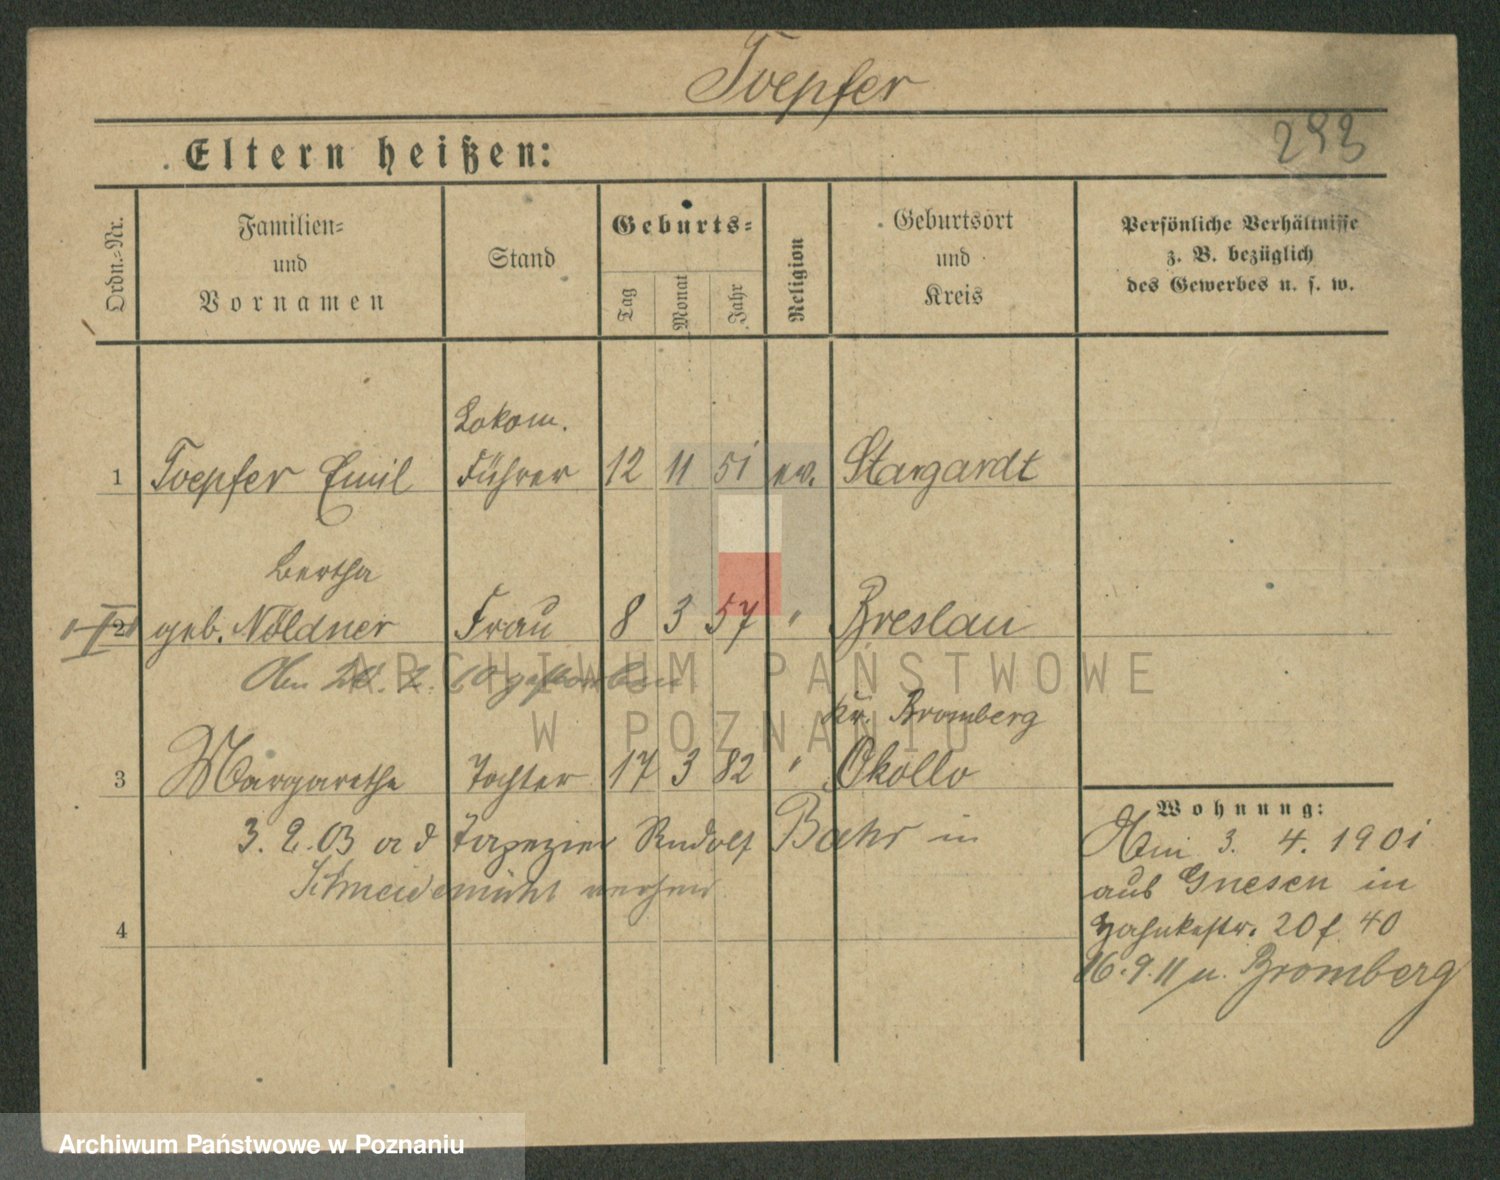 Toepfer
293
Eltern heißen:
Ordn.-Nr.
Familien-
und
Vornamen
Stand
Geburts-
Tag
Monat
Jahr
Religion
Geburtsort
und
Kreis
Persönliche Verhältnisse
z. B. bezüglich
des Gewerbes u. s. w.
Lokom.
1 Toepfer Emil Führer 12 11 51 ev. Stargardt
Bertha
2 geb. Nöldner Frau 8 3 57 " Breslau
20. 2. 10 gestorben
Kr. Bromberg
3 Margarethe Tochter 17 3 82 " Okollo
3. 2. 03 a d Tapezier Rudolf Bahr in
Schneidemühl
4
Wohnung:
Am 3. 4. 1901
aus Gnesen in
20 f 40
16. 9. 11 n. Bromberg
ARCHIWUM PAŃSTWOWE
W POZNANIU
Archiwum Państwowe w Poznaniu